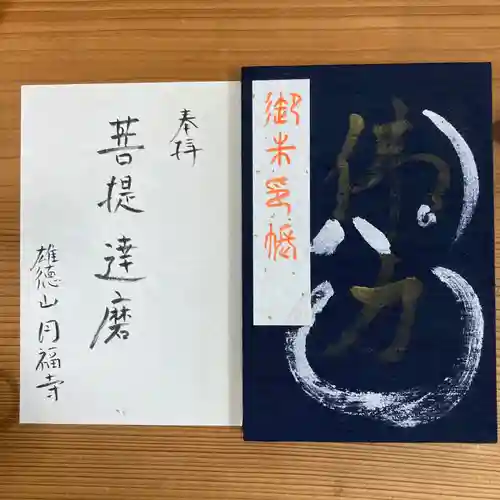 御朱印帳
佛力
奉拝
菩提達磨
雄徳山円福寺